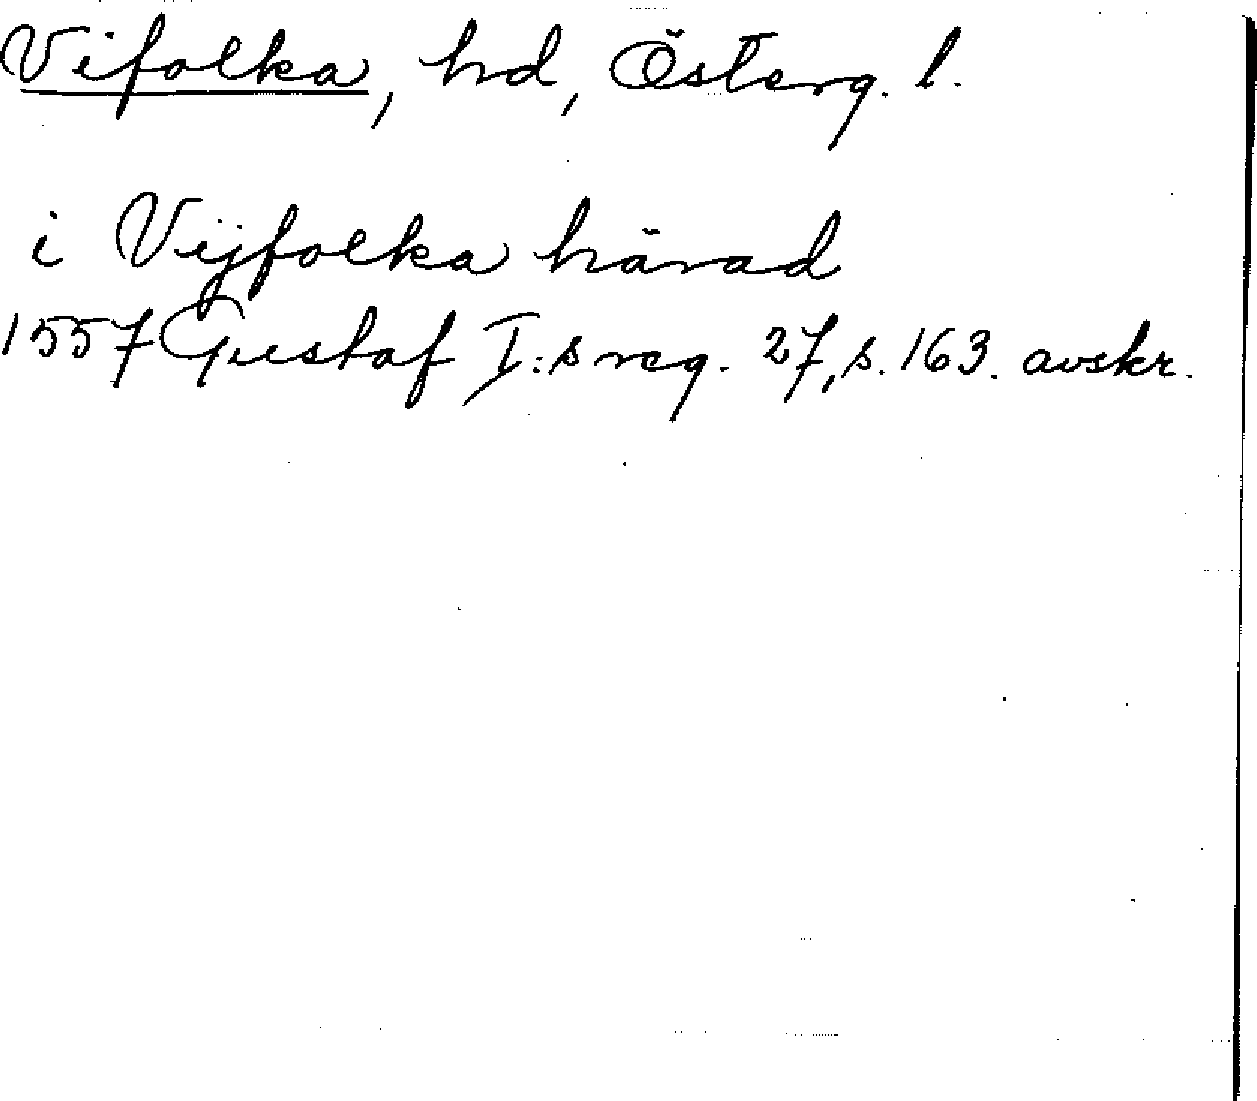 Vifolka, hd, Österg. l.
i Vijfolka härad
1557 Gustaf I:s reg. 27, s. 163. avskr.